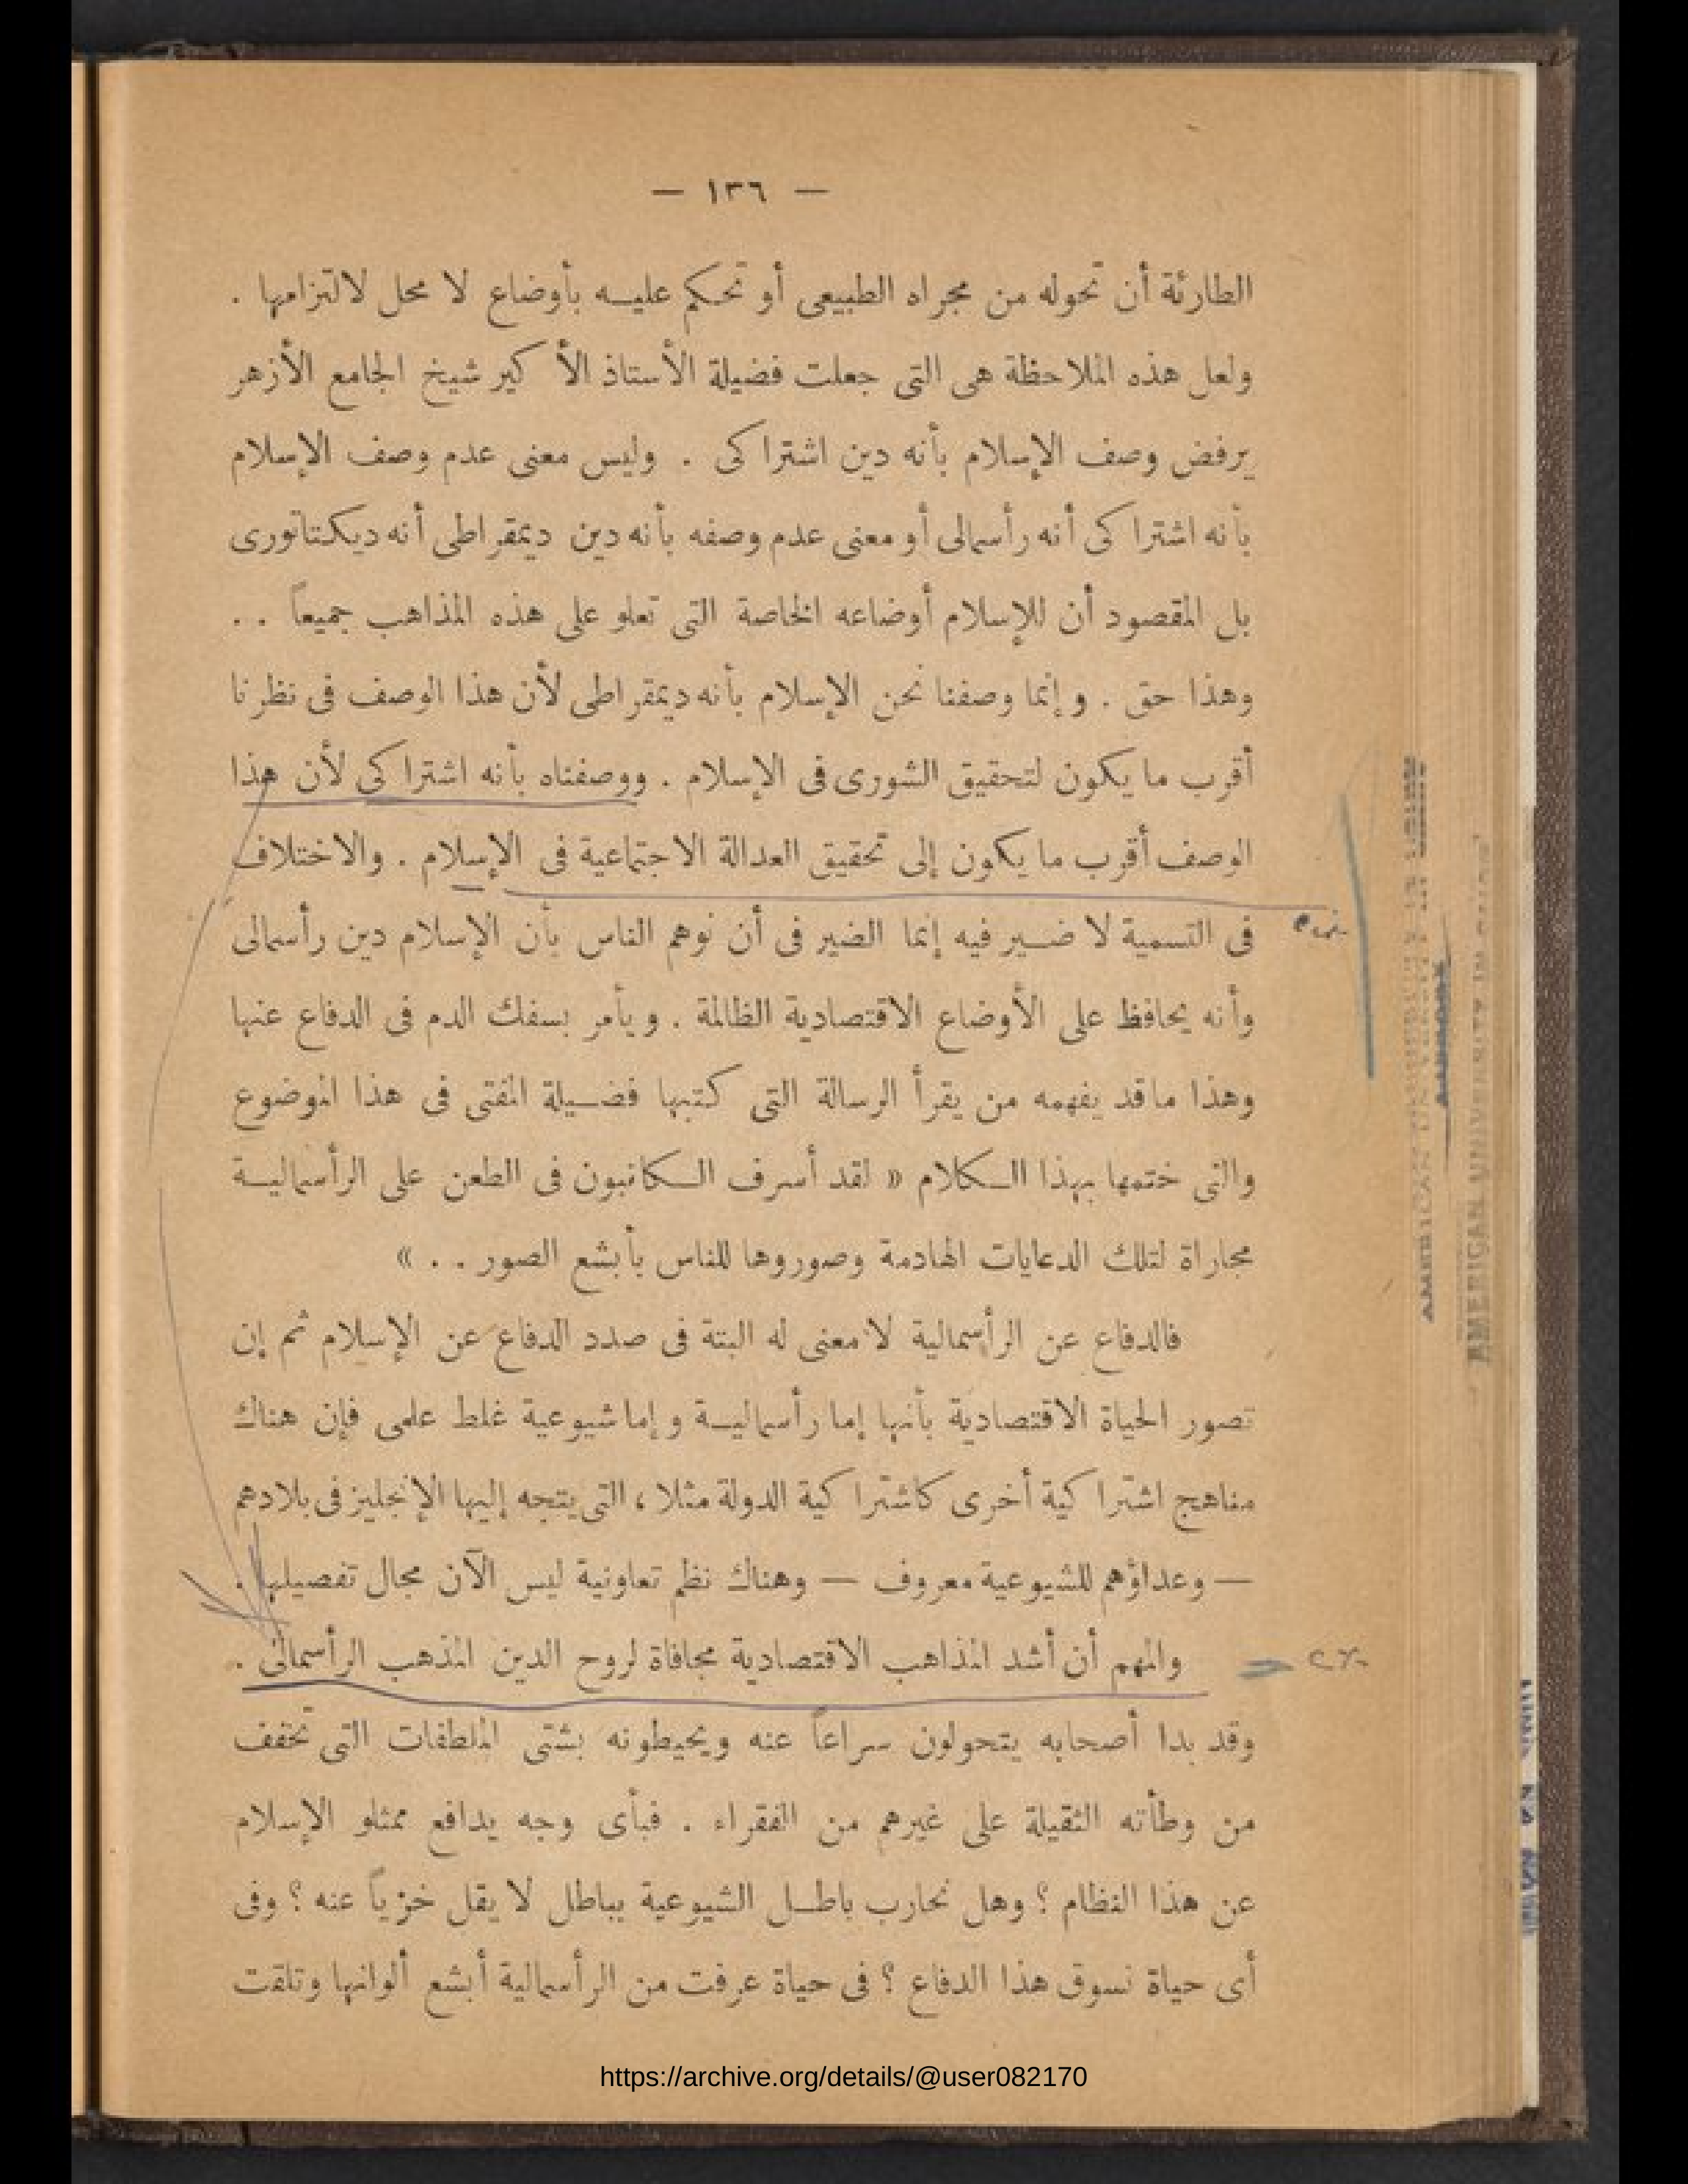 — ١٣٦ —
الطارئة أن تحوله من مجراه الطبيعى أو تحكم عليه بأوضاع لا محل لالتزامها .
ولعل هذه الملاحظة هى التى جعلت فضيلة الأستاذ الأكبر شيخ الجامع الأزهر
يرفض وصف الإسلام بأنه دين اشتراكى . وليس معنى عدم وصف الإسلام
بأنه اشتراكى أنه رأسمالى أو معنى عدم وصفه بأنه دين ديمقراطى أنه ديكتاتورى
بل المقصود أن للإسلام أوضاعه الخاصة التى تعلو على هذه المذاهب جميعاً . .
وهذا حق . وإنما وصفنا نحن الإسلام بأنه ديمقراطى لأن هذا الوصف فى نظرنا
أقرب ما يكون لتحقيق الشورى فى الإسلام . ووصفناه بأنه اشتراكى لأن هذا
الوصف أقرب ما يكون إلى تحقيق العدالة الاجتماعية فى الإسلام . والاختلاف
فى التسمية لا ضير فيه إنما الضير فى أن نوهم الناس بأن الإسلام دين رأسمالى
وأنه يحافظ على الأوضاع الاقتصادية الظالمة . ويأمر بسفك الدم فى الدفاع عنها
وهذا ما قد يفهمه من يقرأ الرسالة التى كتبها فضيلة المفتى فى هذا الموضوع
والتى ختمها بهذا الكلام « لقد أسرف الكاتبون فى الطعن على الرأسمالية
مجاراة لتلك الدعايات الهادمة وصوروها للناس بأبشع الصور . . »
فالدفاع عن الرأسمالية لا معنى له البتة فى صدد الدفاع عن الإسلام ثم إن
تصور الحياة الاقتصادية بأنها إما رأسمالية وإما شيوعية غلط علمى فإن هناك
مناهج اشتراكية أخرى كاشتراكية الدولة مثلا ، التى يتجه إليها الإنجليز فى بلادهم
— وعداؤهم للشيوعية معروف — وهناك نظم تعاونية ليس الآن مجال تفصيلها .
والمهم أن أشد المذاهب الاقتصادية مجافاة لروح الدين المذهب الرأسمالى .
وقد بدا أصحابه يتحولون سراعاً عنه ويحيطونه بشتى الملطفات التى تخفف
من وطأته الثقيلة على غيرهم من الفقراء . فبأى وجه يدافع ممثلو الإسلام
عن هذا النظام ؟ وهل نحارب باطل الشيوعية بباطل لا يقل خزياً عنه ؟ وفى
أى حياة نسوق هذا الدفاع ؟ فى حياة عرفت من الرأسمالية أبشع ألوانها وتلقت
https://archive.org/details/@user082170